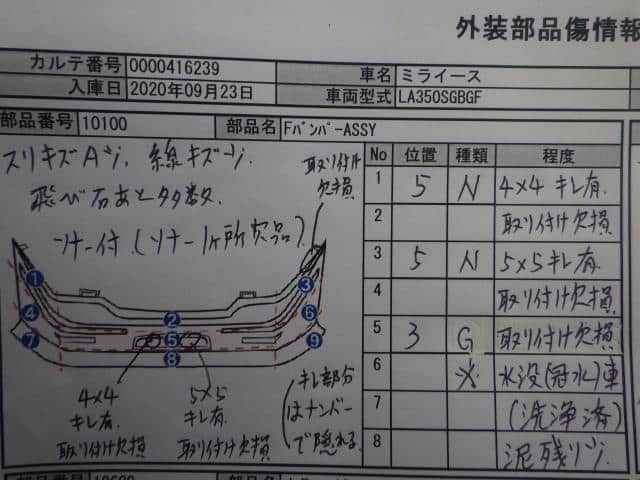 外装部品傷情報
カルテ番号 0000416239 車名 ミライース
入庫日 2020年09月23日 車両型式 LA350SGBGF
部品番号 10100 部品名 FバンパーASSY
スリキズA少、線キズ少、
飛び石あと多数、
ソナー付(ソナー1ヶ所欠品)
取り付け
欠損
1
2
3
4
5
6
7
8
9
4×4
キレ有、
取り付け欠損
5×5
キレ有、
取り付け欠損
キレ部分
はナンバー
で隠れる
No 位置 種類 程度
1 5 N 4×4 キレ有、
2 取り付け欠損
3 5 N 5×5 キレ有、
4 取り付け欠損
5 3 G 取り付け欠損
6 ※ 水没(冠水)車
7 (洗浄済)
8 泥残り少